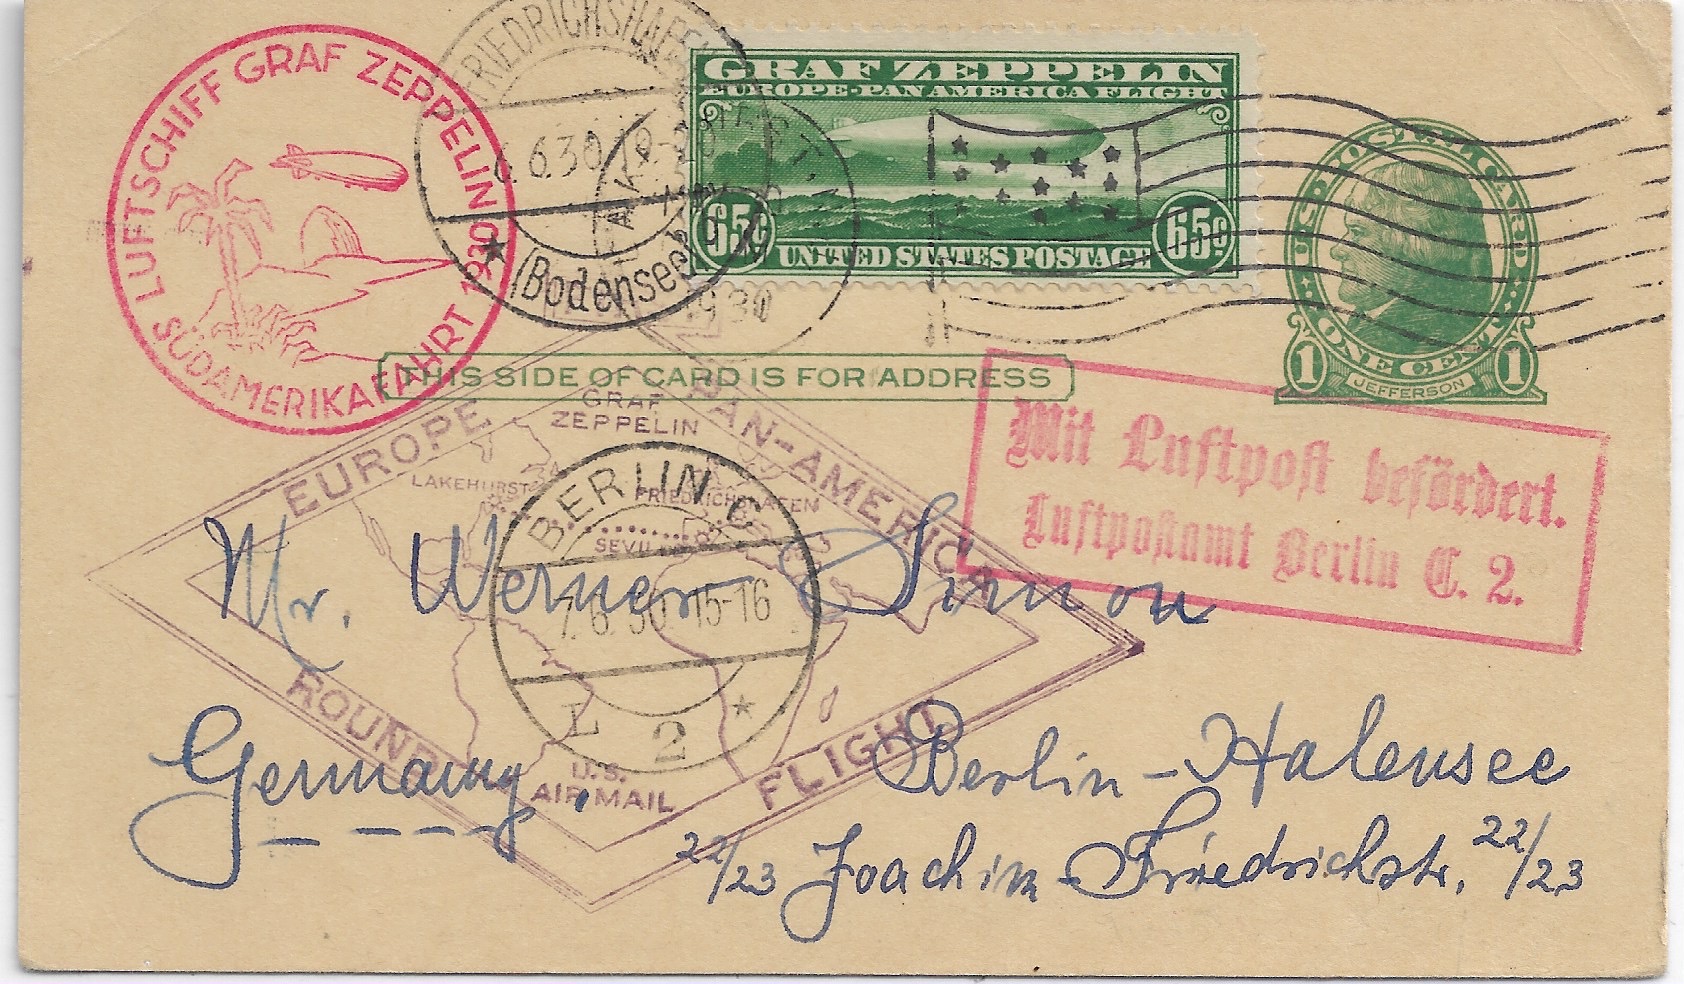 LUFTSCHIFF GRAF ZEPPELIN
SÜDAMERIKAFAHRT 1930
FRIEDRICHSHAFEN
6.6.30
(Bodensee)
1930
GRAF ZEPPELIN
EUROPE-PAN AMERICA FLIGHT
65¢ 65¢
UNITED STATES POSTAGE
U.S. POSTAL CARD
1 ONE CENT 1
JEFFERSON
THIS SIDE OF CARD IS FOR ADDRESS
Mit Luftpost befördert.
Luftpostamt Berlin C. 2.
EUROPE PAN-AMERICA
GRAF
ZEPPELIN
LAKEHURST
FRIEDRICHSHAFEN
ROUND FLIGHT
U.S.
AIR MAIL
BERLIN C
7.6.30 15-16
L 2
Mr. Werner Simon
Germany. Berlin-Halensee
22/23 Joachim-Friedrichstr. 22/23